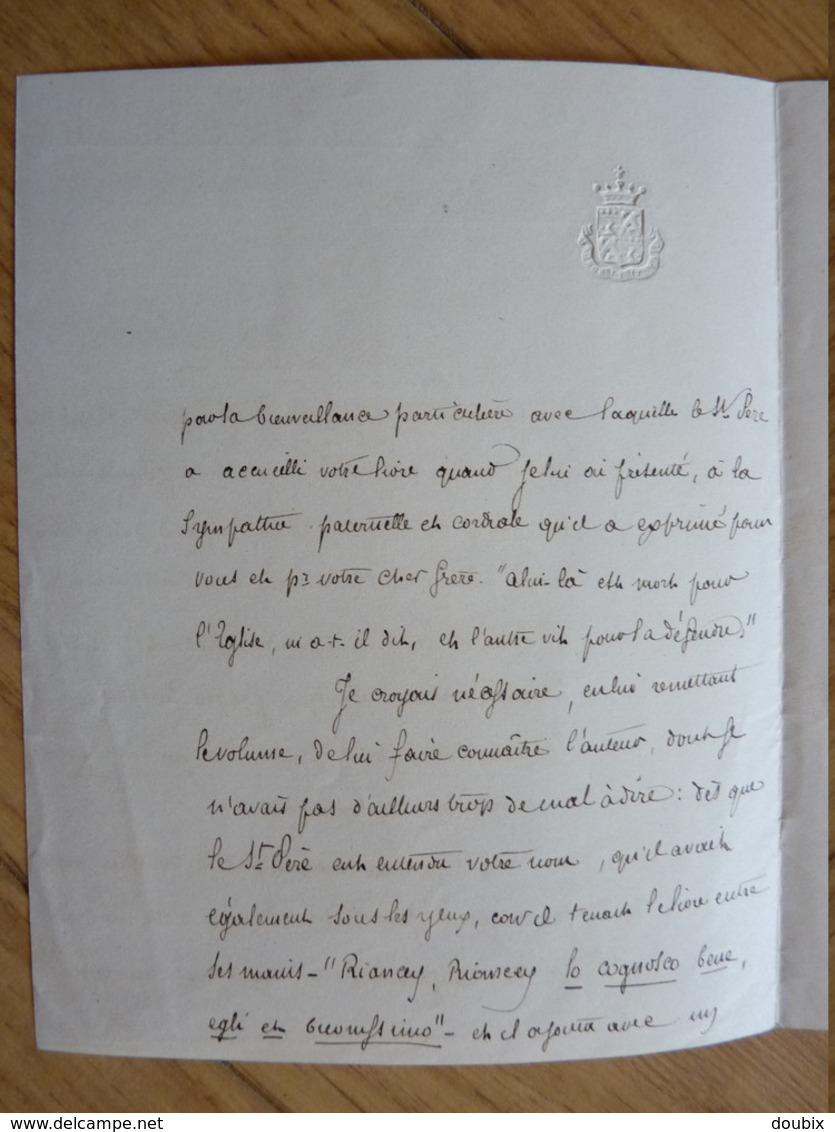 pour la bienveillance particulière avec laquelle le St Père
a accueilli votre livre quand je lui ai présenté, à la
sympathie paternelle et cordiale qu'il a exprimé pour
vous et pr votre cher frère. "Celui-là est mort pour
l'Eglise, m'a-t-il dit, et l'autre vit pour la défendre."
Je croyais nécessaire, en lui remettant
le volume, de lui faire connaître l'auteur, dont je
n'avais pas d'ailleurs trop de mal à dire : dès que
le St Père eut entendu votre nom, qu'il avait
également sous les yeux, car il tenait le livre entre
ses mains - "Riancey, Riancey lo cognosco bene,
egli è buonissimo" - et il ajouta avec un
delcampe.net
doubix